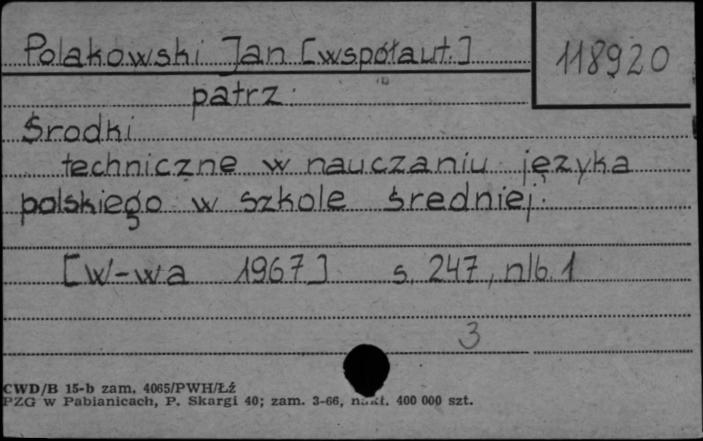 Polakowski Jan [współaut.]
118920
patrz
Środki
techniczne w nauczaniu języka
polskiego w szkole średniej.
[W-wa 1967] s. 247, nlb. 1
3
CWD/B 15-b zam. 4065/PWH/Łź
PZG w Pabianicach, P. Skargi 40; zam. 3-66, nakł. 400 000 szt.